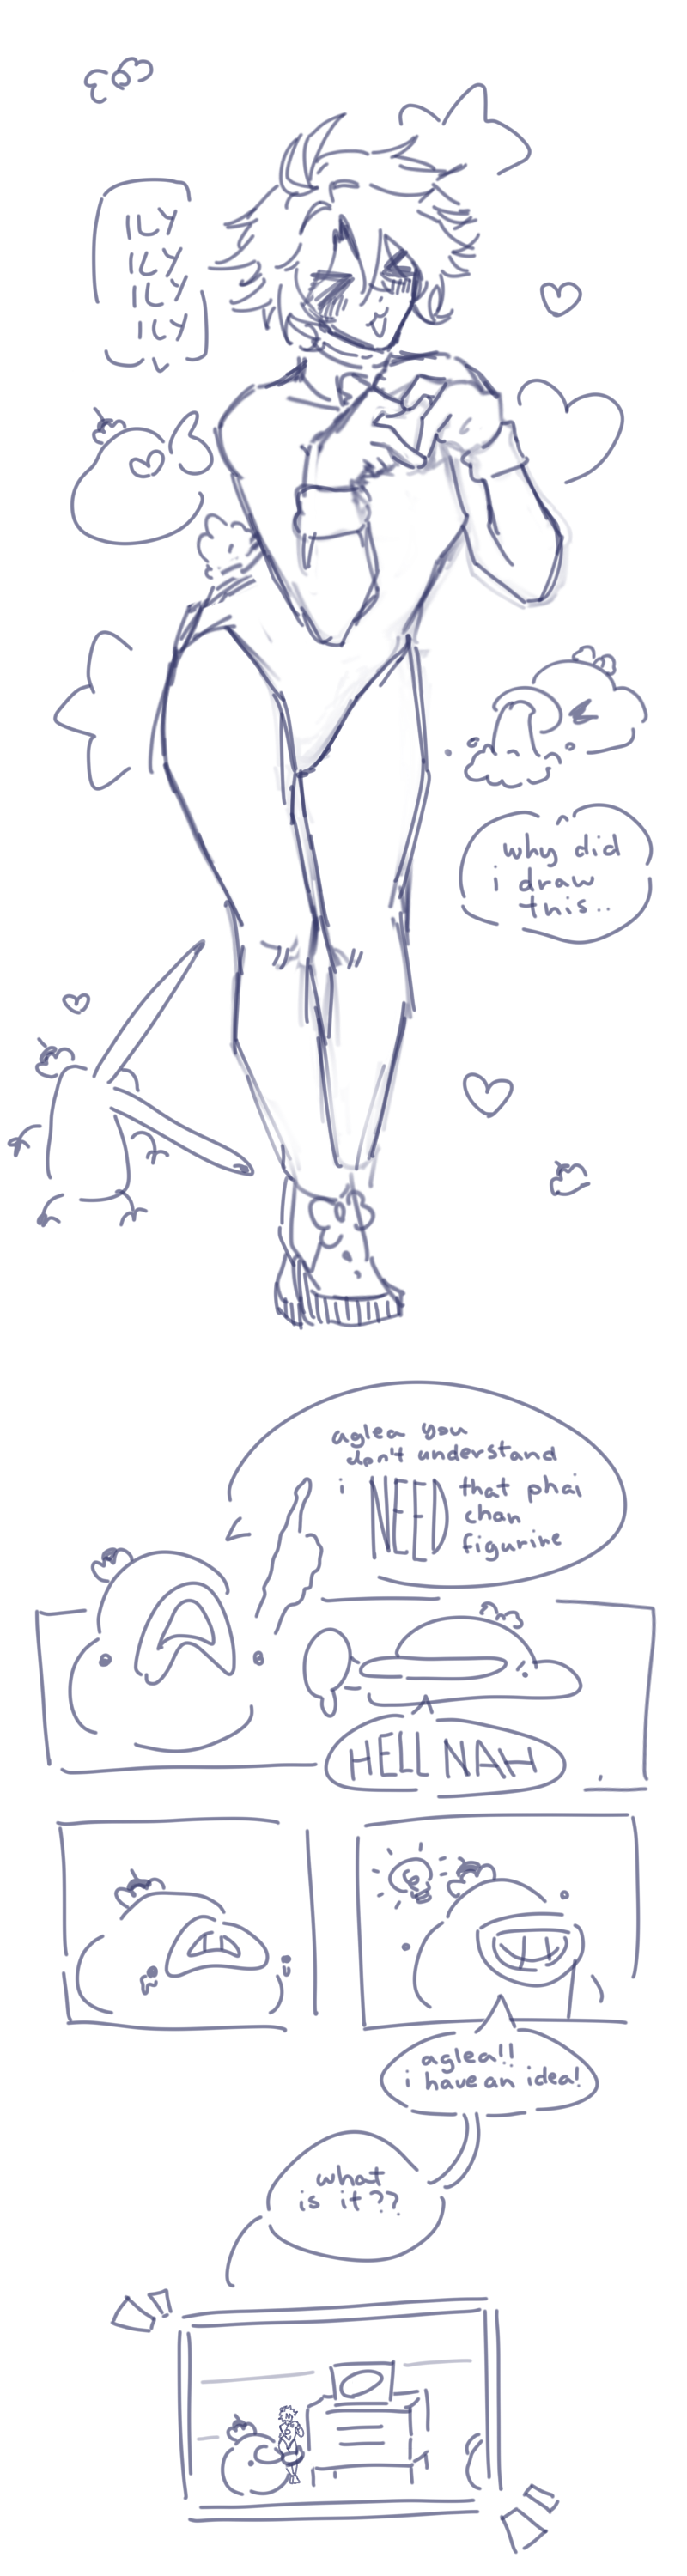 ILY
ILY
ILY
ILY
why did
i draw
this..
aglea you
don't understand
i NEED that phai
chan
figurine
HELL NAH
aglea!!
i have an idea!
what
is it??